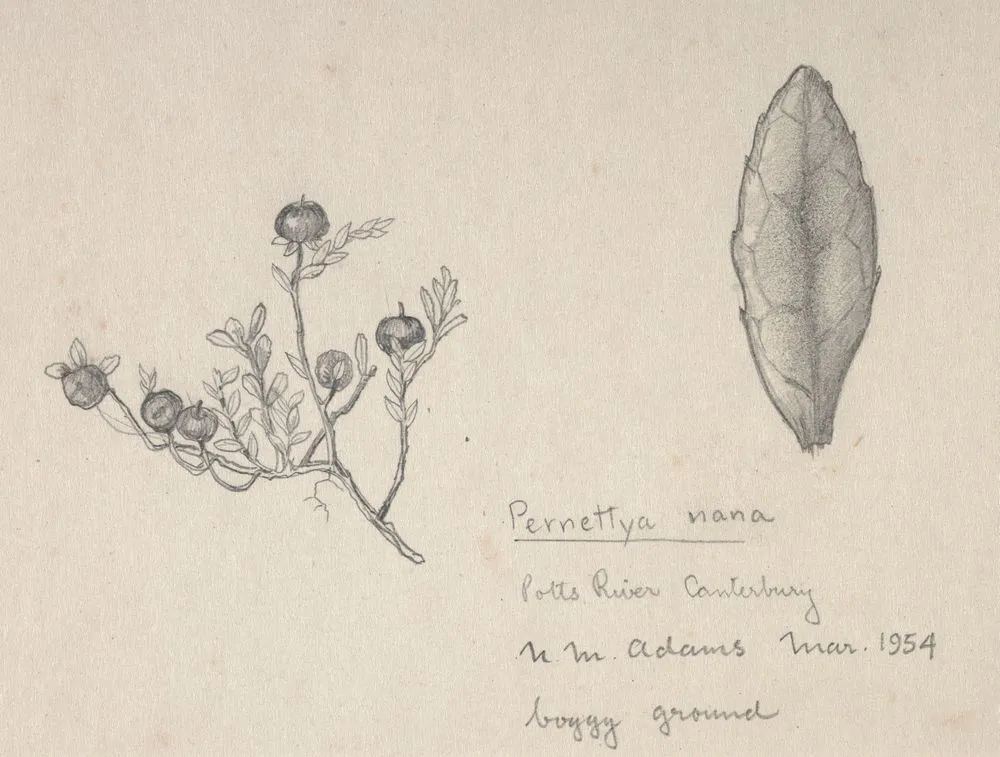 Pernettya nana
Potts River Canterbury
N. M. Adams Mar. 1954
boggy ground